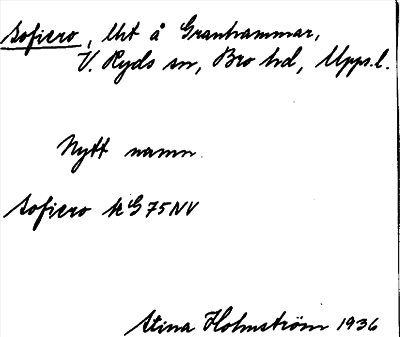 Sofiero, lht å Granhammar,
V. Ryds sn, Bro hd, Upps.l.
Nytt namn.
Sofiero k G 75 NV
Stina Holmström 1936